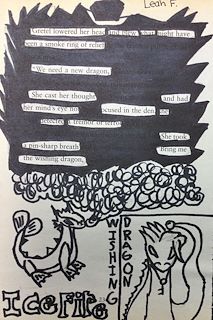 Leah F.
Gretel lowered her head and threw might have
seen a smoke ring of relief
"We need a new dragon,
She cast her thought and had
her mind's eye ocused in the den
detected a tremor of terror
She took
a pin-sharp breath Bring me
the wishing dragon,
WISHING
DRAGON
Icefire